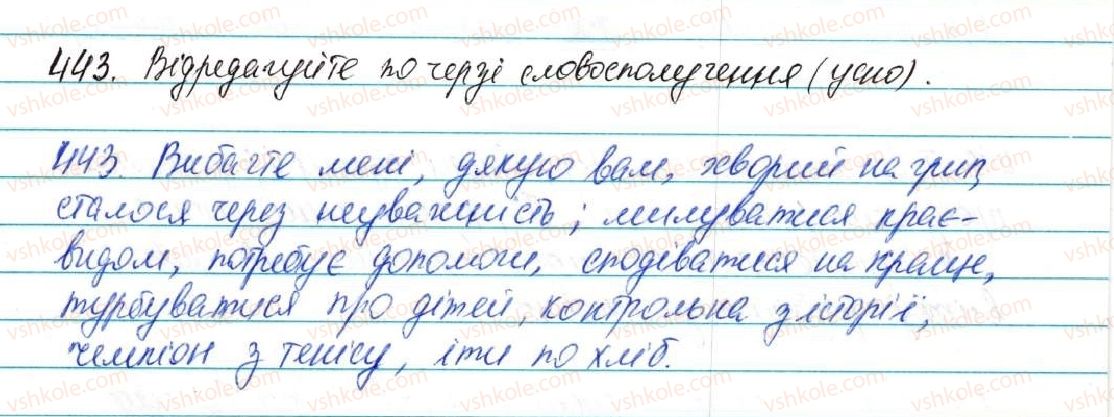 443. Відредагуйте по черзі словосполучення (усно).
443. Вибачте мені, дякую вам, хворий на грип,
сталося через неуважність; милуватися крає-
видом, потребує допомоги, сподіватися на краще,
турбуватися про дітей, контрольна з історії;
чемпіон з тенісу, іти по хліб.